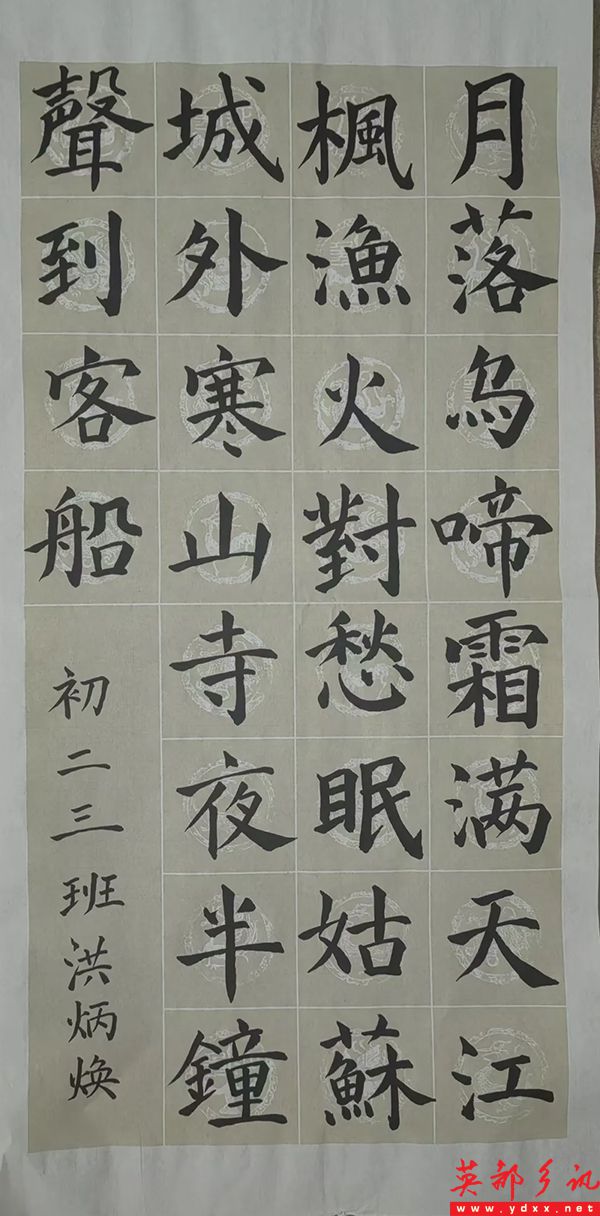 月落烏啼霜满天江
楓漁火對愁眠姑蘇
城外寒山寺夜半鐘
聲到客船
初二三班洪炳焕
英都乡讯
www.ydxx.net